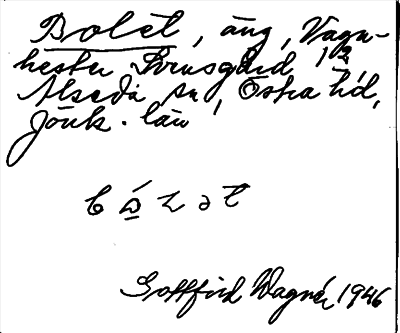 Bolet, äng, Vagn-
hester Svensgård 1/2,
Alseda sn, Östra hd,
Jönk. län
Gottfrid Wagnér 1946